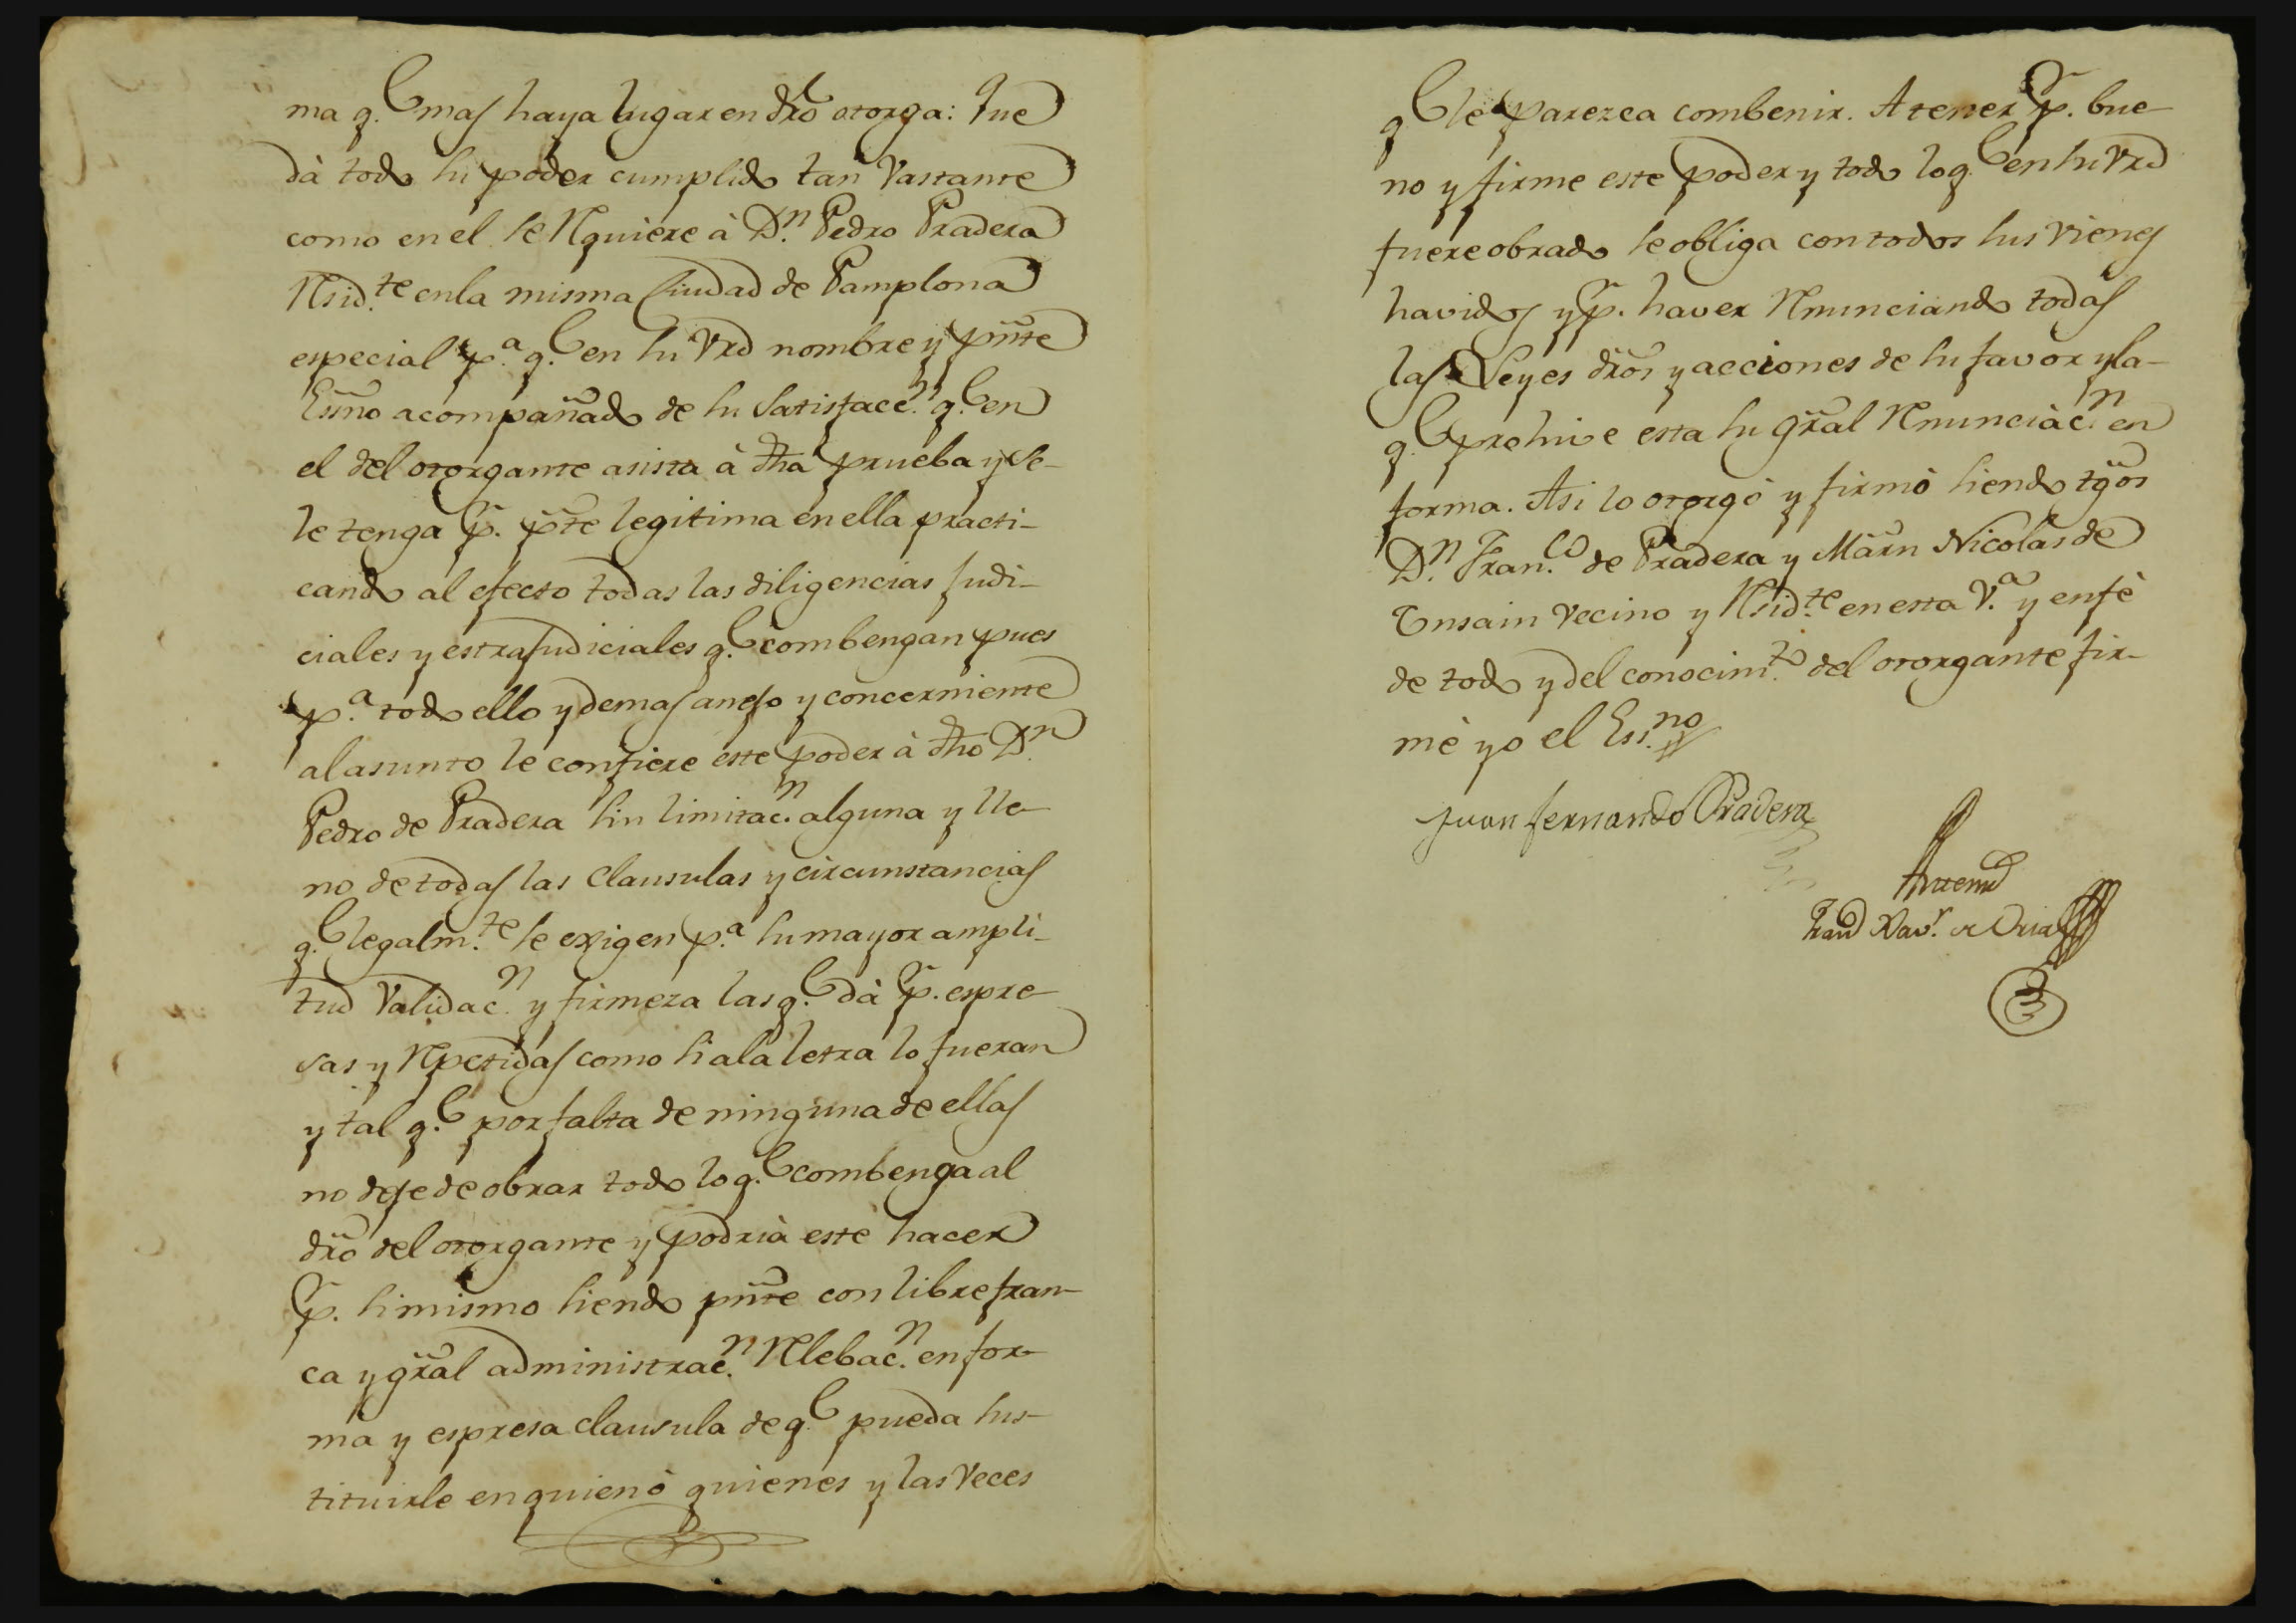 ma q.e mas haya lugar en dr̃o otorga: Que
dà todo su poder cumplido tan Vastante
como en el se Requiere à D.n Pedro Pradera
Resid.te en la misma Ciudad de Pamplona
especial p.a q.e en su Vrd nombre y pñte
Essño acompañado de su Satisfacc.n q.e en
el del otorgante asista à dh̃a prueba y se-
le tenga p.r pr̃te legitima en ella practi-
cando al efecto todas las diligencias Judi-
ciales y estraJudiciales q.e combengan pues
p.a todo ello y demas anejo y concerniente
al asunto le confiere este poder à dh̃o D.n
Pedro de Pradera sin limitac.n alguna y lle-
no de todas las Clausulas y circunstancias
q.e legalm.te se exigen p.a su mayor ampli-
tud Validac.n y firmeza las q.e dà p.r espre-
sas y Repetidas como si a la letra lo fueran
y tal q.e por falta de ninguna de ellas
no deje de obrar todo lo q.e combenga al
dr̃o del otorgante y podrìa este hacer
p.r si mismo siendo pñte con libre fran-
ca y gr̃al administrac.n Relebac.n en for-
ma y espresa clausula de q.e pueda sus-
tituirle en quien ò quienes y las Veces
q.e le parezca combenir. A tener p.r bue-
no y firme este poder y todo lo q.e en su Vrd
fuere obrado se obliga con todos sus Vienes
havidos y p.r haver Renunciando todas
las Leyes dr̃os y acciones de su favor y la-
q.e prohive esta su gr̃al Renunciàc.n en
forma. Asi lo otorgò y firmò siendo tg̃os
D.n Fran.co de Pradera y Mãrn Nicolàs de
Insain Vecino y Resid.te en esta V.a y en fè
de todo y del conocim.to del otorgante fir-
mè yo el Ess.no
Juan fernando Pradera
Antemi
Xav.r de Oria